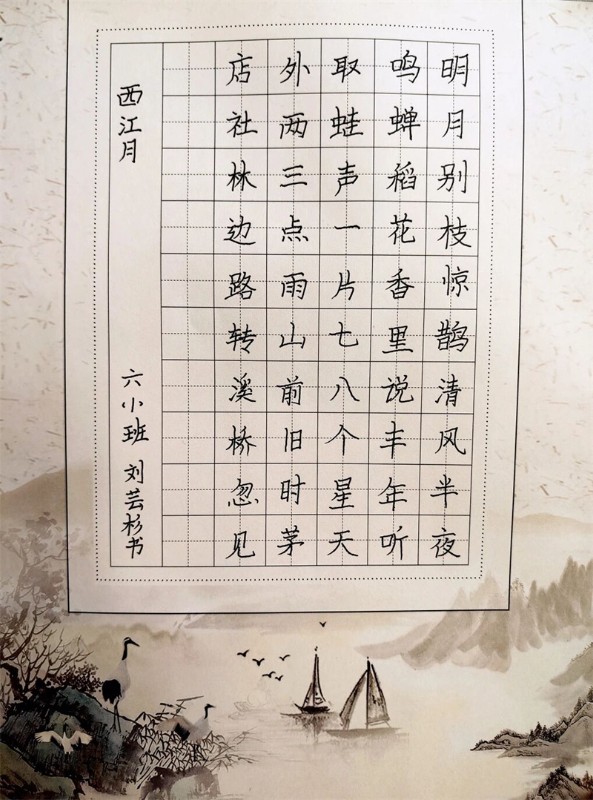 明月别枝惊鹊清风半夜
鸣蝉稻花香里说丰年听
取蛙声一片七八个星天
外两三点雨山前旧时茅
店社林边路转溪桥忽见
西江月 六小班 刘芸杉书